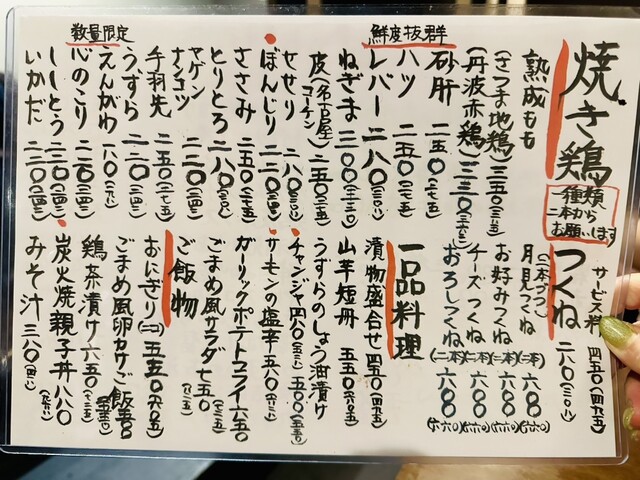 焼き鶏
一種類
二本から
お願いします
熟成もも
(さつま地鶏) 三五〇(三八五)
(丹波赤鶏) 三三〇(三六三)
鮮度抜群
砂肝 二五〇(二七五)
ハツ 二五〇(二七五)
レバー 二八〇(三〇八)
ねぎま 三〇〇(三三〇)
皮(名古屋コーチン) 二五〇(二七五)
せせり 二八〇(三〇八)
ぼんじり 二二〇(二四二)
ささみ 二五〇(二七五)
とりとろ 二八〇(三〇八)
ヤゲンナンコツ 二二〇(二四二)
数量限定
手羽先 二五〇(二七五)
うずら 二二〇(二四二)
えんがわ 一八〇(一九八)
心のこり 二二〇(二四二)
ししとう 二二〇(二四二)
いかだ 二二〇(二四二)
サービス料 四五〇(四九五)
つくね 二八〇(三〇八)
(二本づつ)
月見つくね (二本) 六八〇
お好みつくね (二本) 六八〇
チーズつくね (二本) 六八〇
おろしつくね (二本) 六〇〇(六六〇)
一品料理
漬物盛合せ 四五〇(四九五)
山芋短冊 五五〇(六〇五)
うずらのしょう油漬け
チャンジャ 四八〇(五二八)
サーモンの塩辛 五八〇
ガーリックポテトフライ 六五〇
ごまめ風サラダ 七五〇
ご飯物
おにぎり(二コ) 五五〇(六〇五)
ごまめ風卵カケご飯
鶏茶漬け 六五〇(七一五)
炭火焼親子丼 八八〇(九六八)
みそ汁 三八〇(四一八)